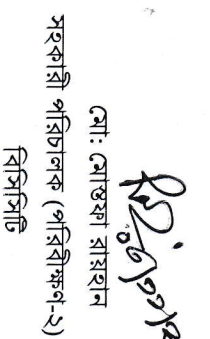 মো: মোস্তফা রায়হান
সহকারী পরিচালক (পরিবীক্ষণ-২)
বিসিসিটি